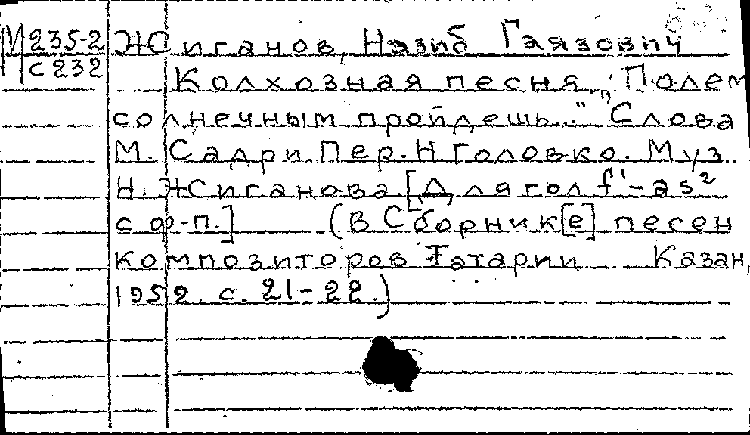 М 235-2 Жиганов, Назиб Гаязович
с 232
Колхозная песня. "Полем
солнечным пройдешь..." Слова
М. Садри. Пер. Н Головко. Муз.
Н. Жиганова. [Для гол f'-as²
с ф-п.] (В Сборник[е] песен
композиторов Татарии Казан,
1952. с. 21-22.)